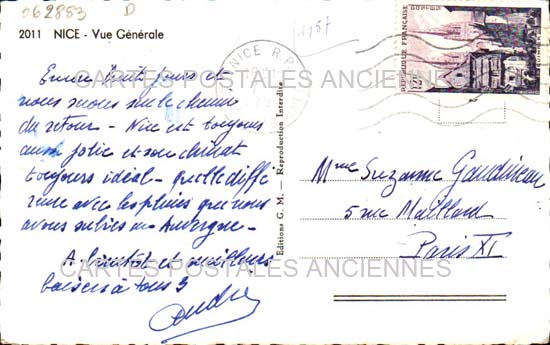 062883 D
1957
2011 NICE - Vue Générale
NICE R.P.
REPUBLIQUE FRANÇAISE
POSTES
12F
Encore huit jours et
nous serons sur le chemin
du retour - Nice est toujours
aussi jolie et son climat
toujours idéal - quelle diffé
rence avec les pluies que nous
avons subies en Auvergne -
A bientôt et meilleurs
baisers à tous 3
André
Editions G. M. — Reproduction Interdite
Mme Suzanne Gaudineau
5 rue Maillard
Paris XI
CARTES POSTALES ANCIENNES
CARTES POSTALES ANCIENNES